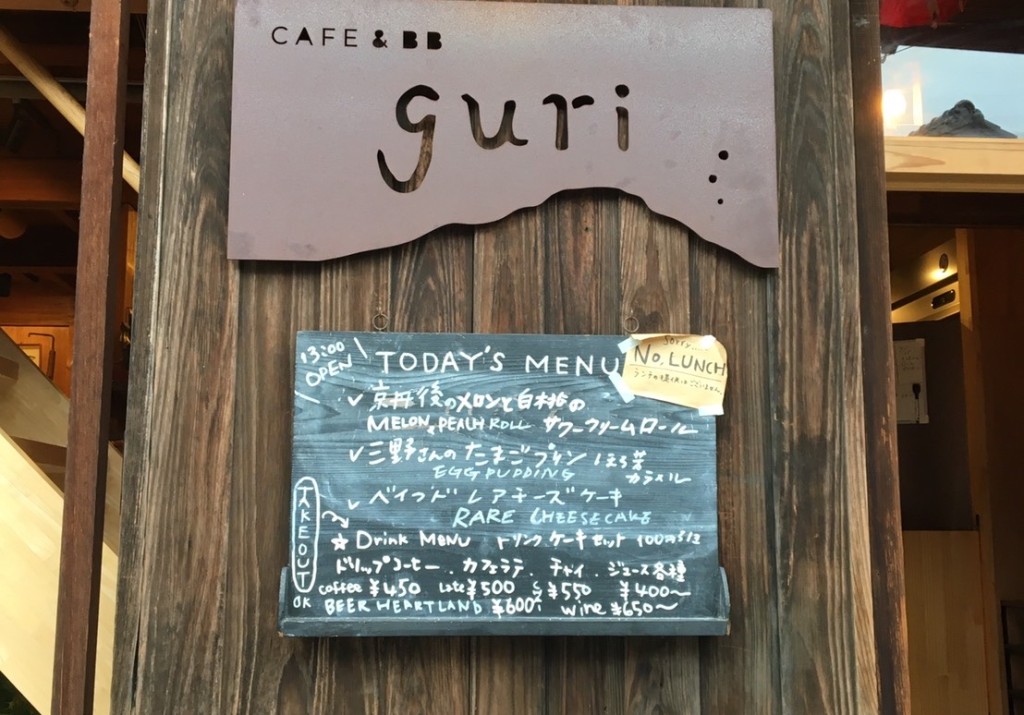 CAFE & BB
guri
13:00
OPEN
TODAY'S MENU
sorry....
No, LUNCH
ランチの提供はございません
✓ 京丹後のメロンと白桃の
MELON & PEACH ROLL サワークリームロール
✓ 三野さんの たまごプリン ほろ苦
EGG PUDDING カラメル
✓ ベイクド レアチーズケーキ
RARE CHEESECAKE
TAKEOUT
OK
☆ Drink MENU ドリンク ケーキセット 100
ドリップコーヒー . カフェラテ . チャイ . ジュース各種
coffee ¥450 Late ¥500 ¥550 ¥400〜
BEER HEARTLAND ¥600 wine ¥650〜